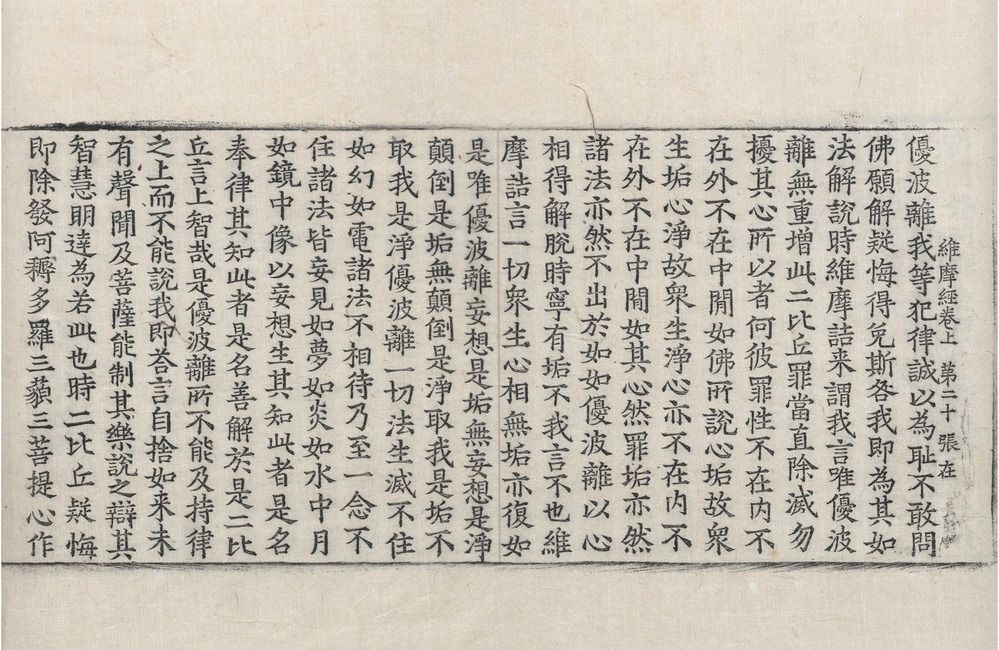 維摩經卷上　第二十張　在
優波離我等犯律誠以為恥不敢問
佛願解疑悔得免斯咎我即為其如
法解說時維摩詰来謂我言唯優波
離無重增此二比丘罪當直除滅勿
擾其心所以者何彼罪性不在内不
在外不在中閒如佛所說心垢故衆
生垢心淨故衆生淨心亦不在内不
在外不在中閒如其心然罪垢亦然
諸法亦然不出於如如優波離以心
相得解脫時寧有垢不我言不也維
摩詰言一切衆生心相無垢亦復如
是唯優波離妄想是垢無妄想是淨
顛倒是垢無顛倒是淨取我是垢不
取我是淨優波離一切法生滅不住
如幻如電諸法不相待乃至一念不
住諸法皆妄見如夢如炎如水中月
如鏡中像以妄想生其知此者是名
奉律其知此者是名善解於是二比
丘言上智哉是優波離所不能及持律
之上而不能說我即荅言自捨如来未
有聲聞及菩薩能制其樂說之辯其
智慧明達為若此也時二比丘疑悔
即除發阿耨多羅三藐三菩提心作